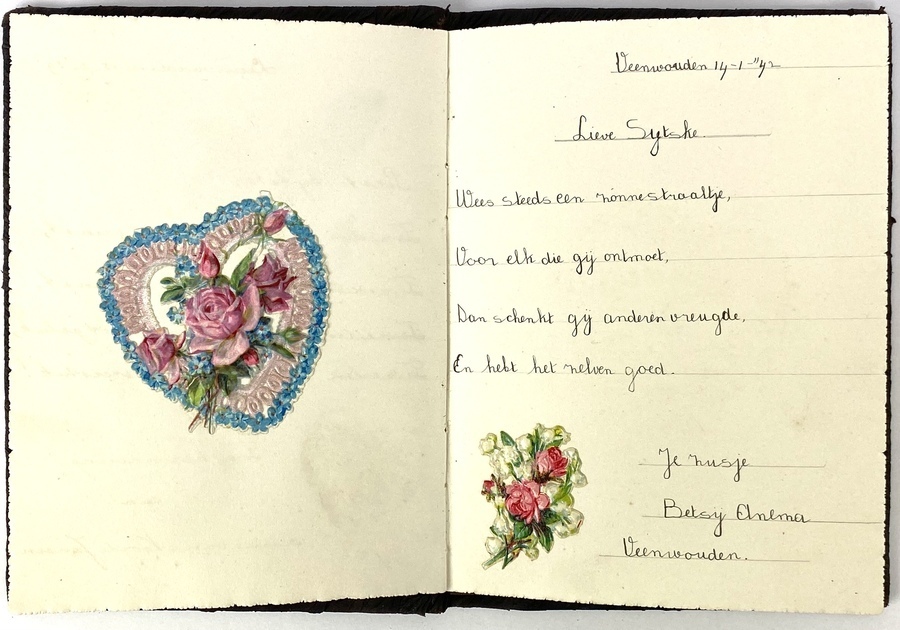 Veenwouden 14-1-"42
Lieve Sytske.
Wees steeds een zonnestraaltje,
Voor elk die gij ontmoet,
Dan schenkt gij anderen vreugde,
En hebt het zelven goed.
Je zusje
Betsij Anema
Veenwouden.